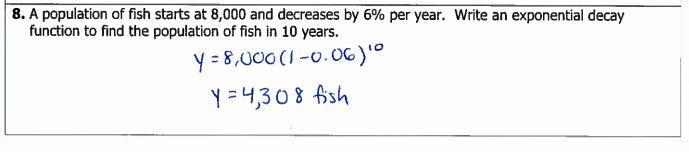 8. A population of fish starts at 8,000 and decreases by 6% per year. Write an exponential decay
function to find the population of fish in 10 years.
y = 8,000(1-0.06)¹⁰
y = 4,308 fish